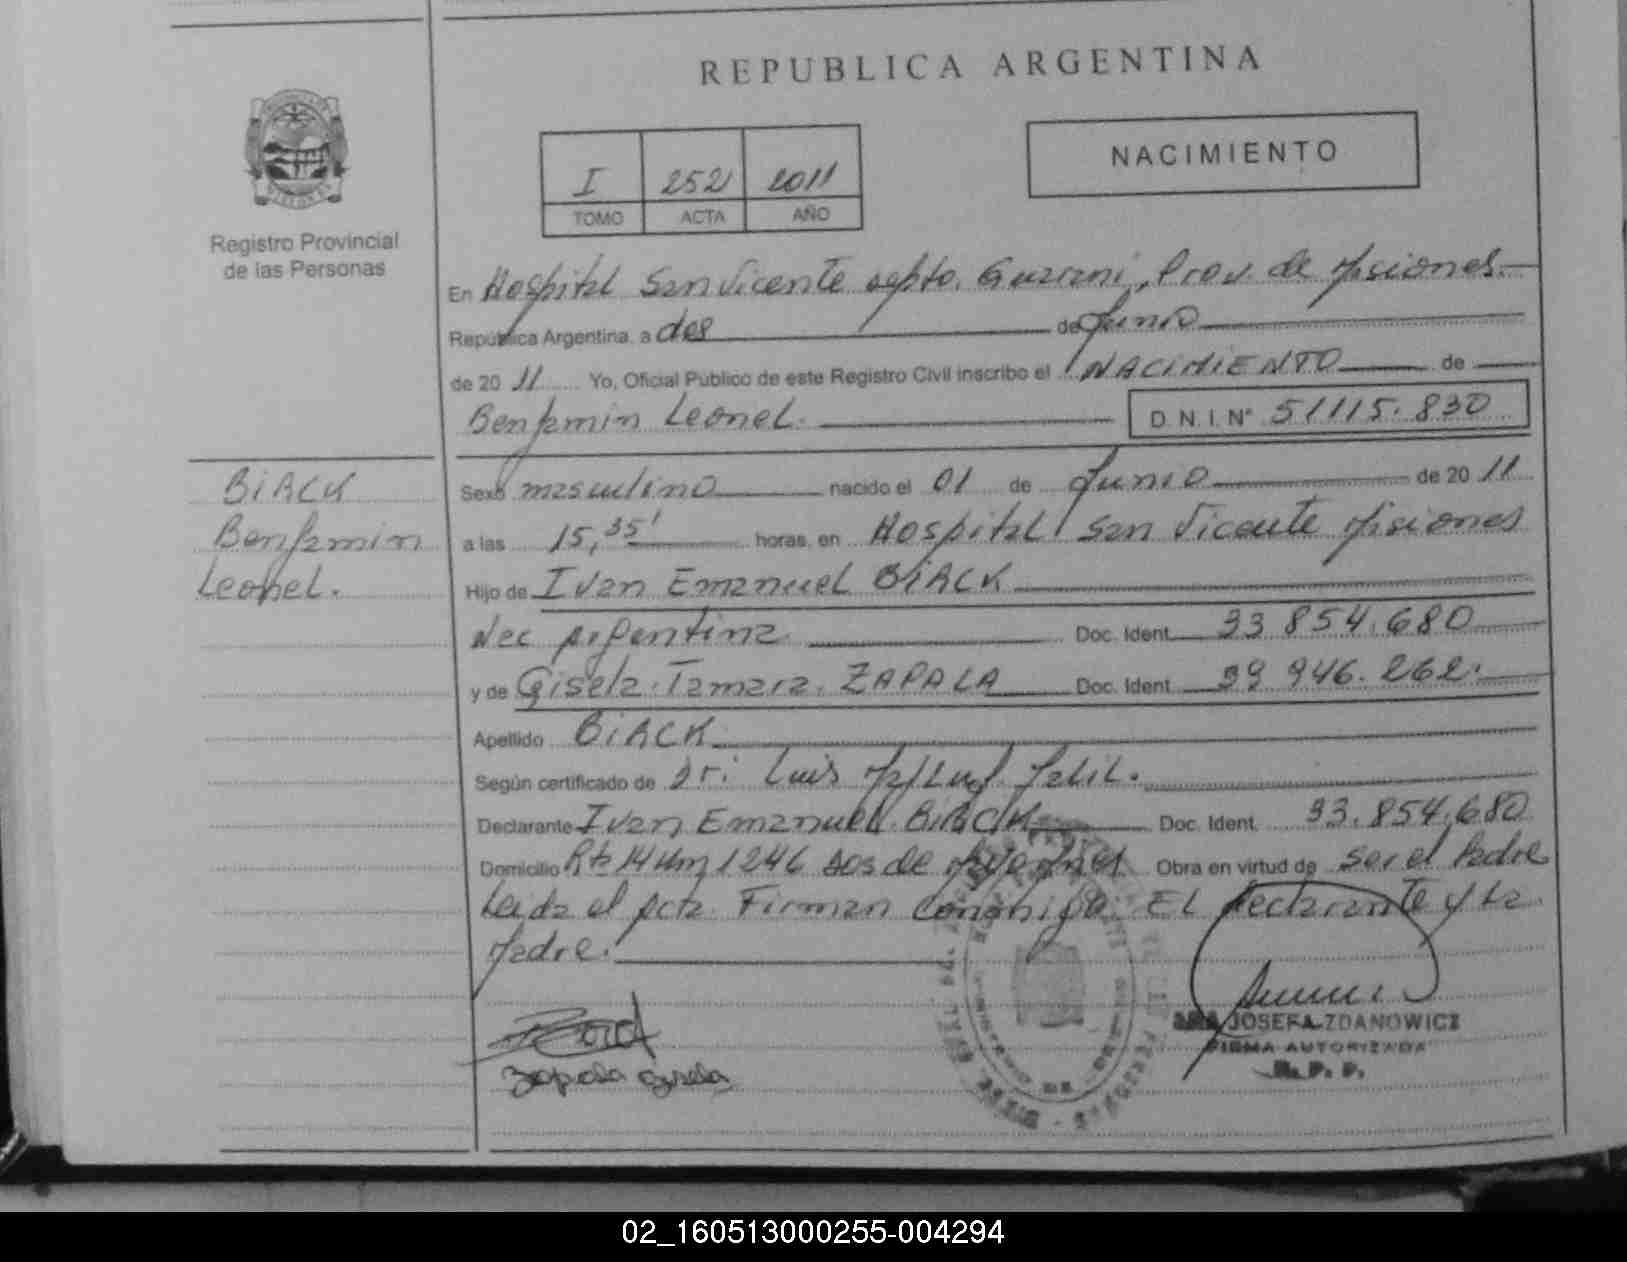 REPUBLICA ARGENTINA
NACIMIENTO
I 252 2011
TOMO ACTA AÑO
Registro Provincial
de las Personas
En Hospital San Vicente Depto. Guarani, Prov. de Misiones
República Argentina, a dos de Junio
de 20 11 Yo, Oficial Público de este Registro Civil inscribo el NACIMIENTO de
Benjamin Leonel. D.N.I. N° 51115.830
BiACK
Benjamin
Leonel.
Sexo masculino nacido el 01 de Junio de 20 11
a las 15,35' horas, en Hospital San Vicente Misiones
Hijo de Ivan Emanuel BiACK
Nac Argentina Doc. Ident. 33 854.680
y de Gisela Tamara ZAPALA Doc. Ident. 39 946.262.
Apellido BiACK
Según certificado de Dr. Luis
Declarante Ivan Emanuel BiACK Doc. Ident. 33.854.680
Domicilio Rta 14 Km 1246 Dos de Mayo Mnes Obra en virtud de ser el Padre
Leida el Acta Firman Conmigo EL Declarante y La
Madre.
Zapala Gisela
JOSEFA ZDANOWICZ
FIRMA AUTORIZADA
R. P. P.
02_160513000255-004294